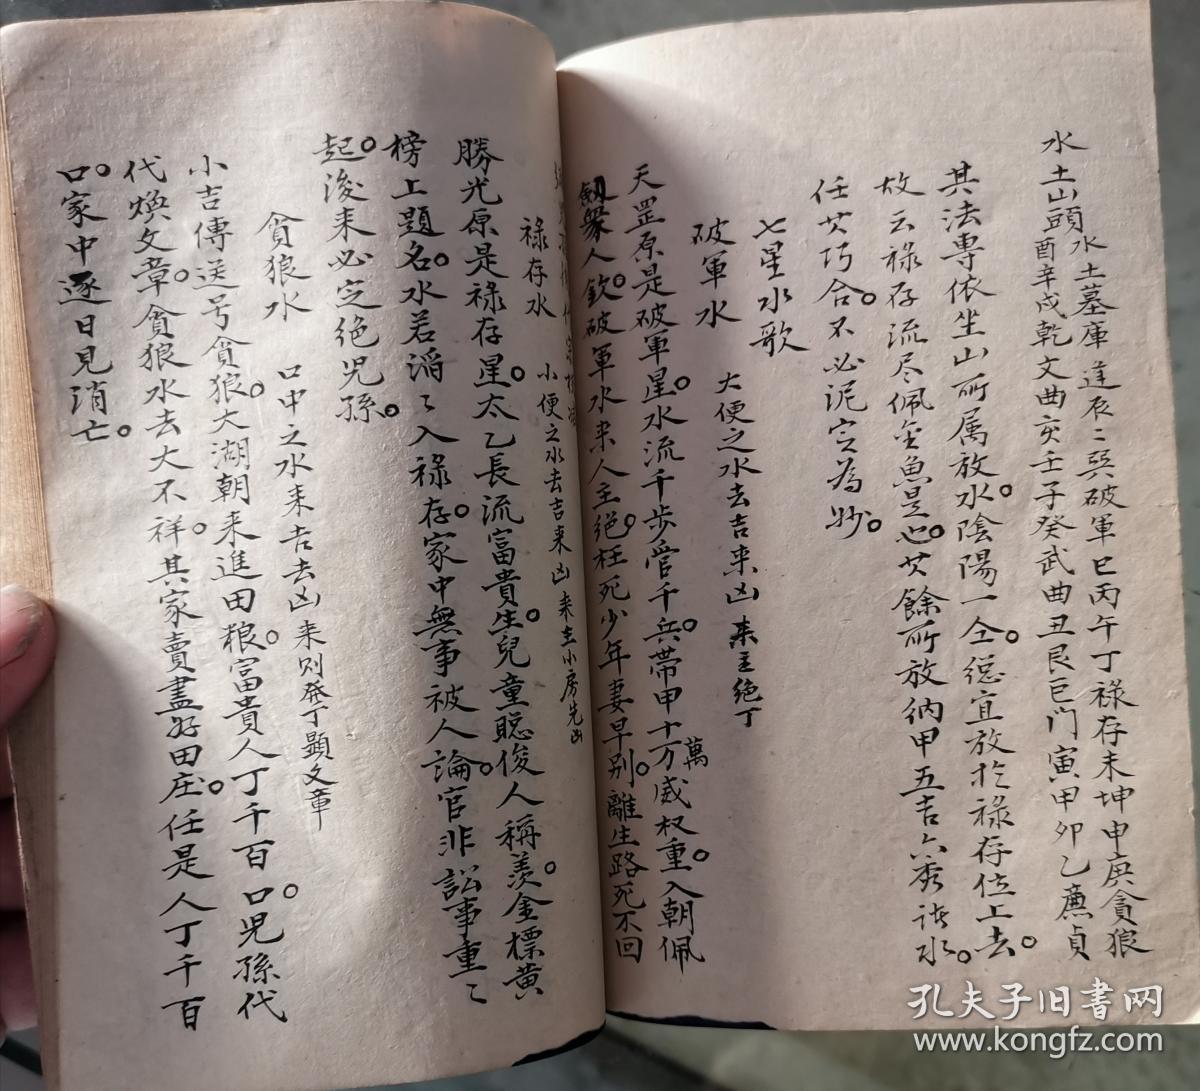 水土山頭 水土墓庫逢辰〻巽破軍巳丙午丁祿存未坤申庚貪狼
酉辛戌乾文曲亥壬子癸武曲丑艮巨门寅甲卯乙亷貞
其法專依坐山所属放水。陰陽一仝。總宜放於祿存位上去。
故云祿存流尽佩金魚是也。其餘所放納甲五吉六秀諸水。
任其巧合。不必泥定為妙。
七星水歌
破軍水 大便之水去吉來凶 来主绝丁
天罡原是破軍星。水流千步管千兵。帶甲十万萬威权重。入朝佩
劔衆人欽。破軍水来人主绝。枉死少年妻早别。離生路死不回
祿存水 小便之水去吉来凶 来主小房先凶
勝光原是祿存星。太乙長流富貴生。兒童聪俊人稱羡。金標黄
榜上題名。水若滔〻入祿存。家中無事被人論。官非訟事重〻
起。浚来必定绝児孫。
貪狼水 口中之水来吉去凶来则發丁顯文章
小吉傳送号貪狼。大湖朝来進田粮。富貴人丁千百口。児孫代
代煥文章。貪狼水去大不祥。其家賣盡好田庄。任是人丁千百
口。家中逐日見消亡。
孔夫子旧书网
www.kongfz.com